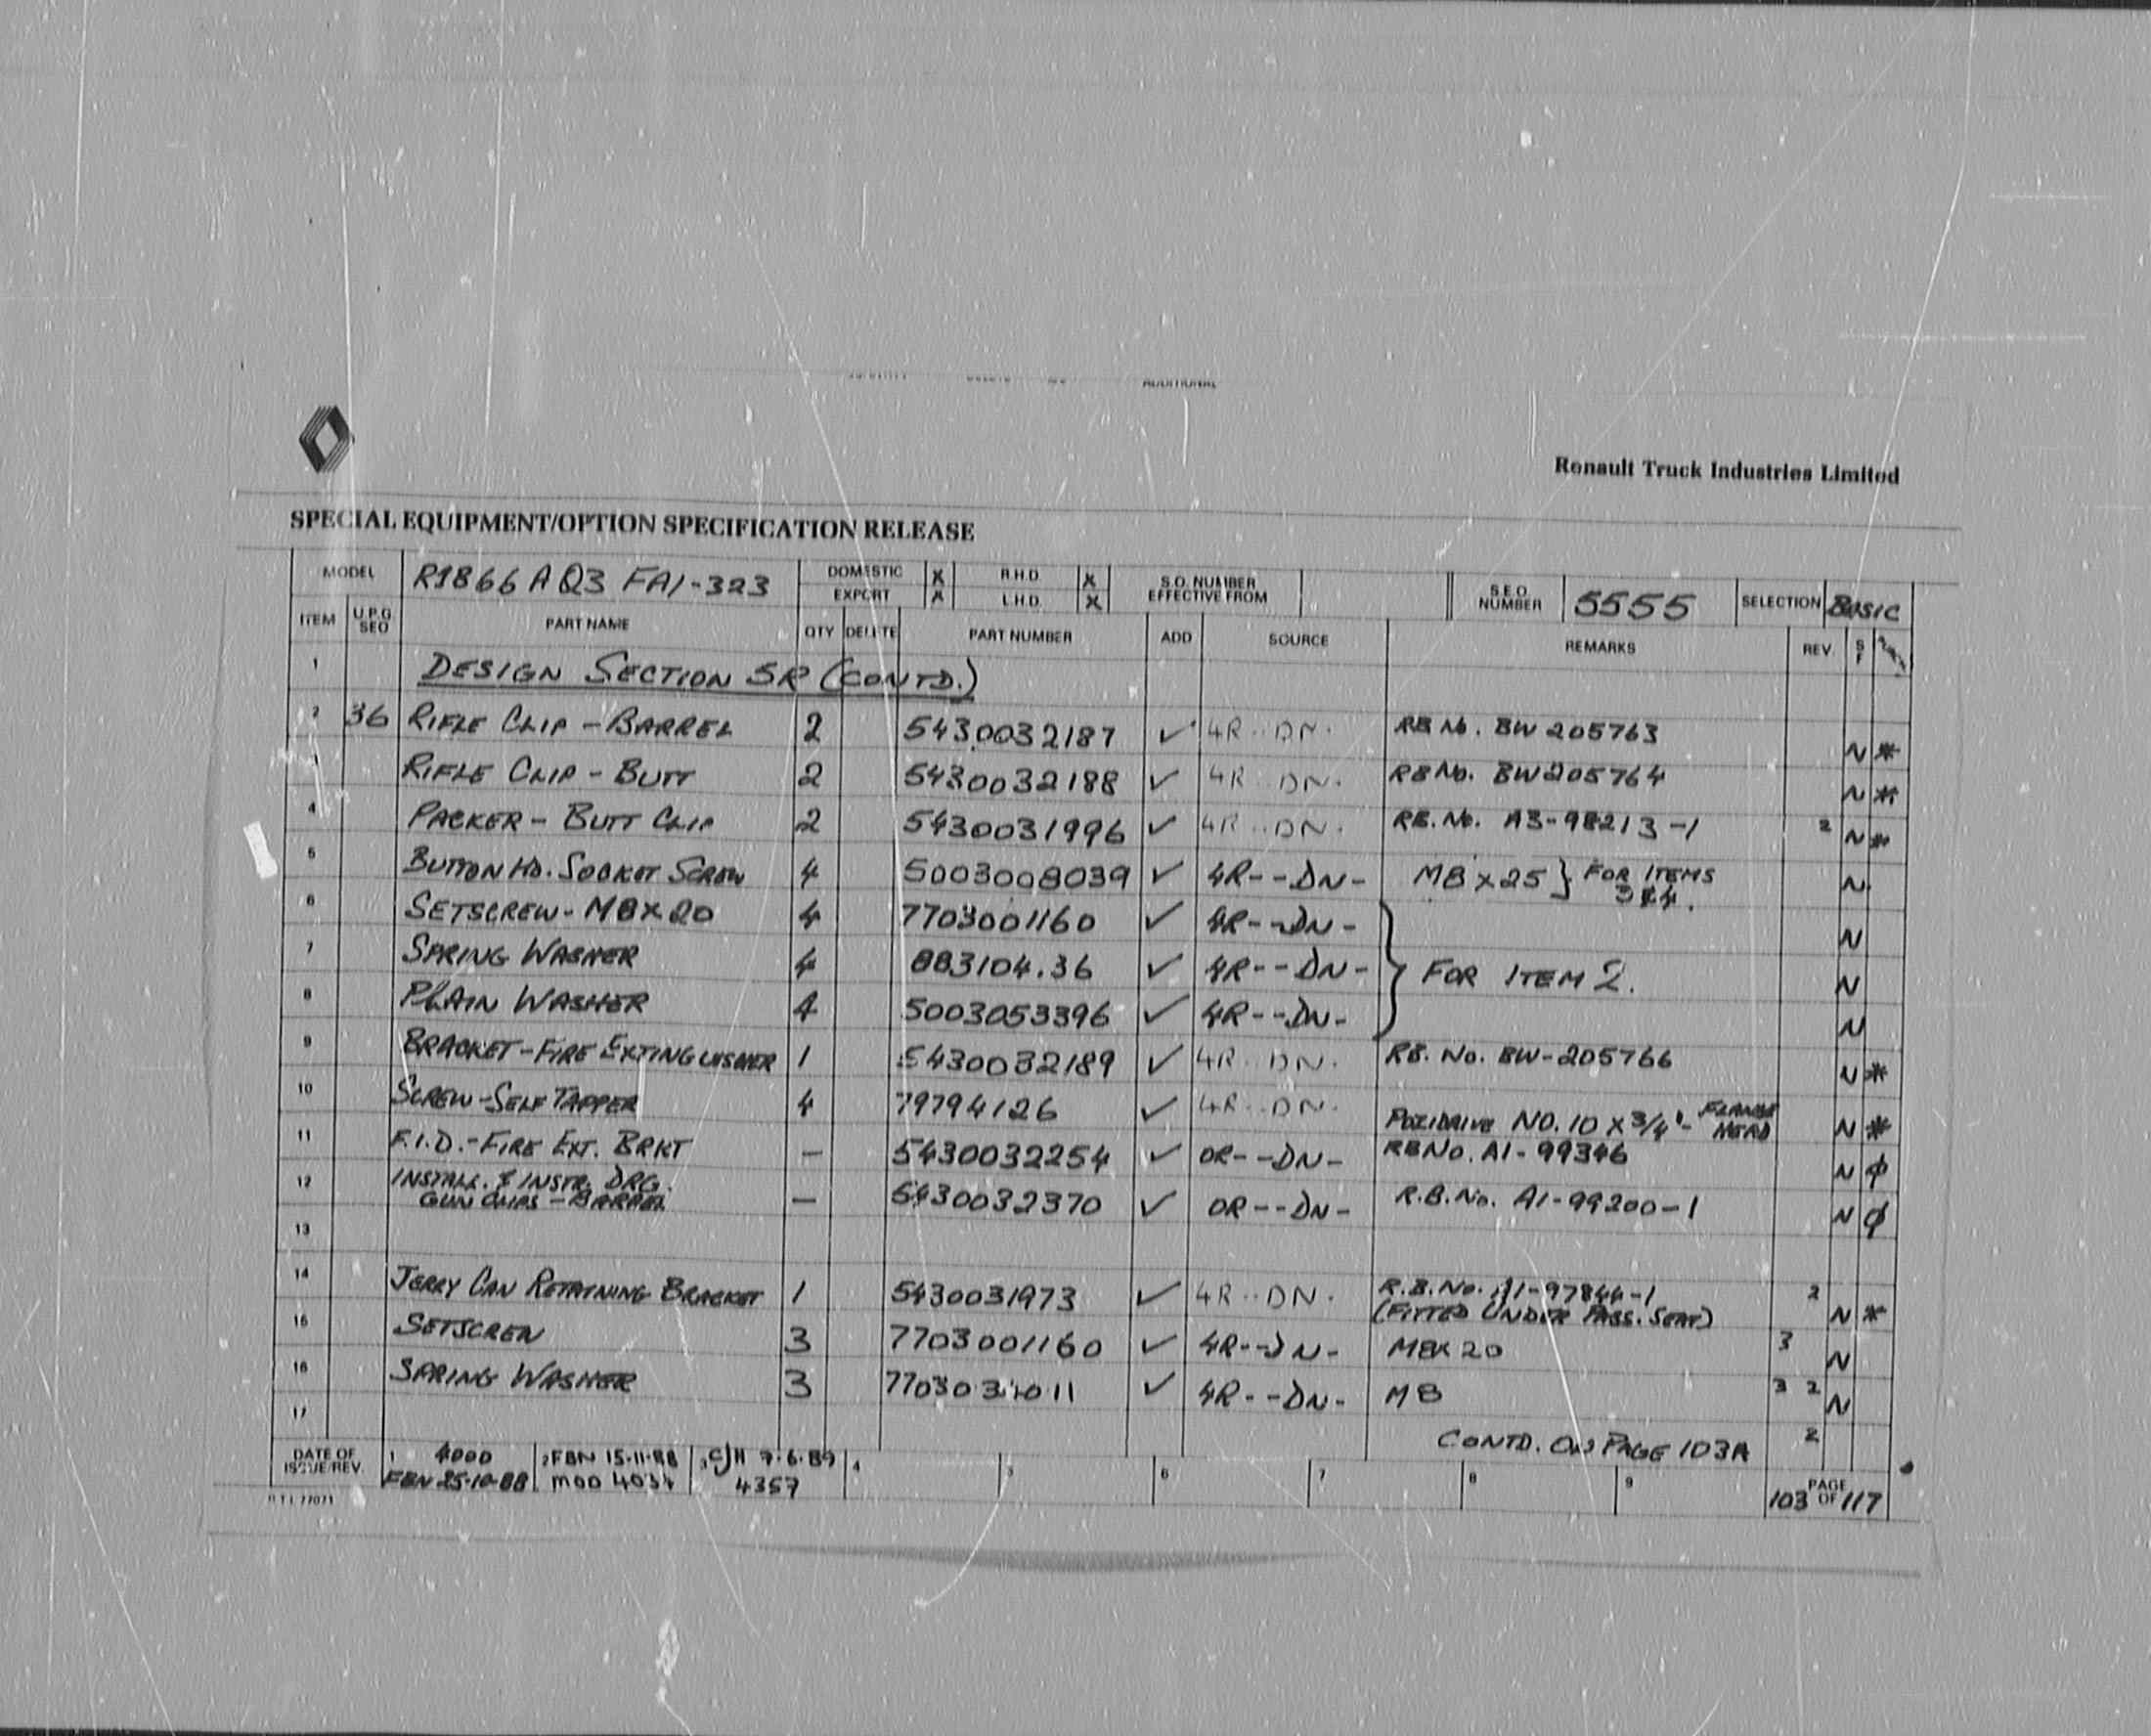 ADDITIONAL
Renault Truck Industries Limited
SPECIAL EQUIPMENT/OPTION SPECIFICATION RELEASE
MODEL R1866 A Q3 FA1-323 DOMESTIC X R.H.D. X S.O. NUMBER S.E.O. NUMBER 5555 SELECTION BASIC
EXPORT X L.H.D. X EFFECTIVE FROM
ITEM U.P.G SEO PART NAME QTY DELETE PART NUMBER ADD SOURCE REMARKS REV. S F
1 DESIGN SECTION 5R (CONTD.)
2 36 RIFLE CLIP - BARREL 2 5430032187 ✓ 4R--DN- RB No. BW 205763 N *
RIFLE CLIP - BUTT 2 5430032188 ✓ 4R--DN- RB No. BW205764 N *
4 PACKER - BUTT CLIP 2 5430031996 ✓ 4R--DN- RB. No. A3-98213-1 2 N *
5 BUTTON HD. SOCKET SCREW 4 5003008039 ✓ 4R--DN- M8 x 25 } FOR ITEMS 3 & 4. N
6 SETSCREW - M8 x 20 4 7703001160 ✓ 4R--DN- N
7 SPRING WASHER 4 883104.36 ✓ 4R--DN- } FOR ITEM 2. N
8 PLAIN WASHER 4 5003053396 ✓ 4R--DN- N
9 BRACKET - FIRE EXTINGUISHER 1 5430032189 ✓ 4R--DN- RB. No. BW-205766 N *
10 SCREW - SELF TAPPER 4 79794126 ✓ 4R--DN- POZIDRIVE NO. 10 x 3/4" - FLANGE HEAD N *
11 F.I.D. - FIRE EXT. BRKT — 5430032254 ✓ 0R--DN- RB No. A1-99346 N ø
12 INSTALL. & INSTR. DRG.
GUN CLIPS - BARREL — 5430032370 ✓ 0R--DN- R.B. No. A1-99200-1 N ø
13
14 JERRY CAN RETAINING BRACKET 1 5430031973 ✓ 4R--DN- R.B. No. A1-97844-1 2
(FITTED UNDER PASS. SEAT) N *
15 SETSCREW 3 7703001160 ✓ 4R--DN- M8 x 20 3 N
16 SPRING WASHER 3 ✓ 4R--DN- M8 3 2 N
17 CONTD. ON PAGE 103A 2
DATE OF ISSUE/REV. 1 4000 2 FBN 15-11-88 3 CJH 9.6.89 4 5 6 7 8 9 PAGE
FBN 25-10-88 MOD 4034 4357 103 OF 117
R.T.I. 77071